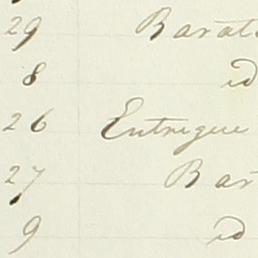 29 Barat
8 id
26 Entregue
27 Bar
9 id